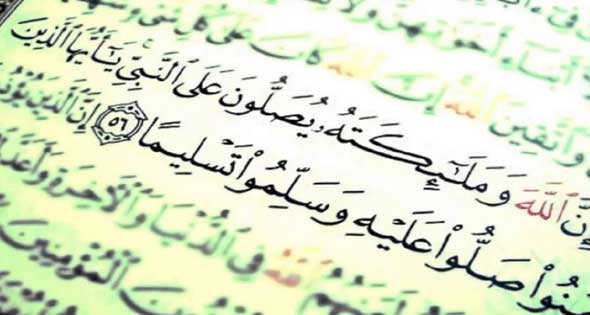 أَبْنَآءِ أَخَوَٰتِهِنَّ وَلَا
وَٱتَّقِينَ ٱللَّهَ إِنَّ ٱللَّهَ كَانَ عَلَىٰ كُلِّ شَىْءٍ
إِنَّ ٱللَّهَ وَمَلَٰٓئِكَتَهُۥ يُصَلُّونَ عَلَى ٱلنَّبِىِّ يَٰٓأَيُّهَا ٱلَّذِينَ
صَلُّوا۟ عَلَيْهِ وَسَلِّمُوا۟ تَسْلِيمًا ٥٦ إِنَّ ٱلَّذِينَ
ٱللَّهُ فِى ٱلدُّنْيَا وَٱلْأَخِرَةِ وَأَعَدَّ
ٱلْمُؤْمِنِينَ